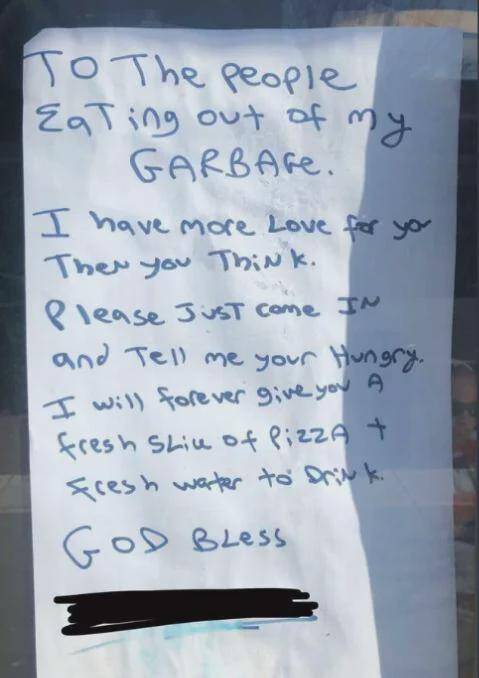 To The people
EaTing out of my
GARBAGe.
I have more Love for you
Then you Think.
Please JusT come IN
and Tell me your Hungry.
I will forever give you A
fresh sLice of PizzA +
fresh water to DrinK.
GOD BLess